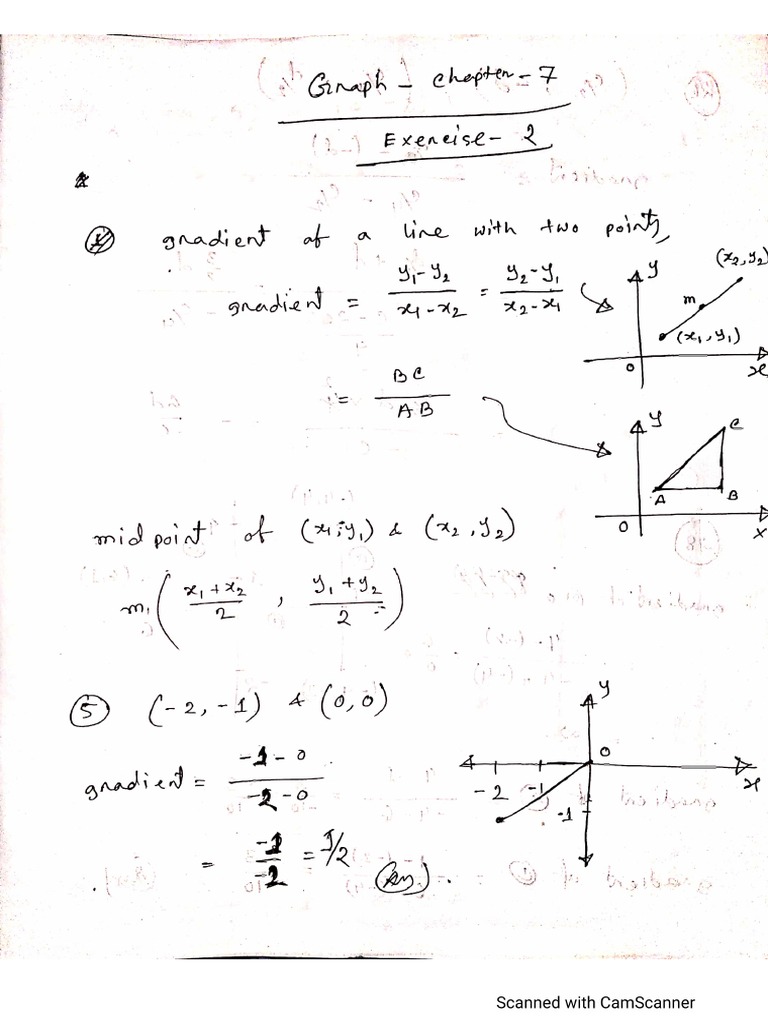 Graph - Chapter - 7
Exercise - 2
gradient of a line with two points,
gradient = (y₁-y₂)/(x₁-x₂) = (y₂-y₁)/(x₂-x₁)
y (x₂, y₂)
m
(x₁, y₁)
O x
= BC/AB
y C
A B
O x
midpoint of (x₁, y₁) & (x₂, y₂)
m₁ ( (x₁+x₂)/2 , (y₁+y₂)/2 )
⑤ (-2, -1) & (0, 0)
y
O
-2 -1 x
-1
gradient = (-1-0)/(-2-0)
= -1/-2 = 1/2 (Ans).
Scanned with CamScanner